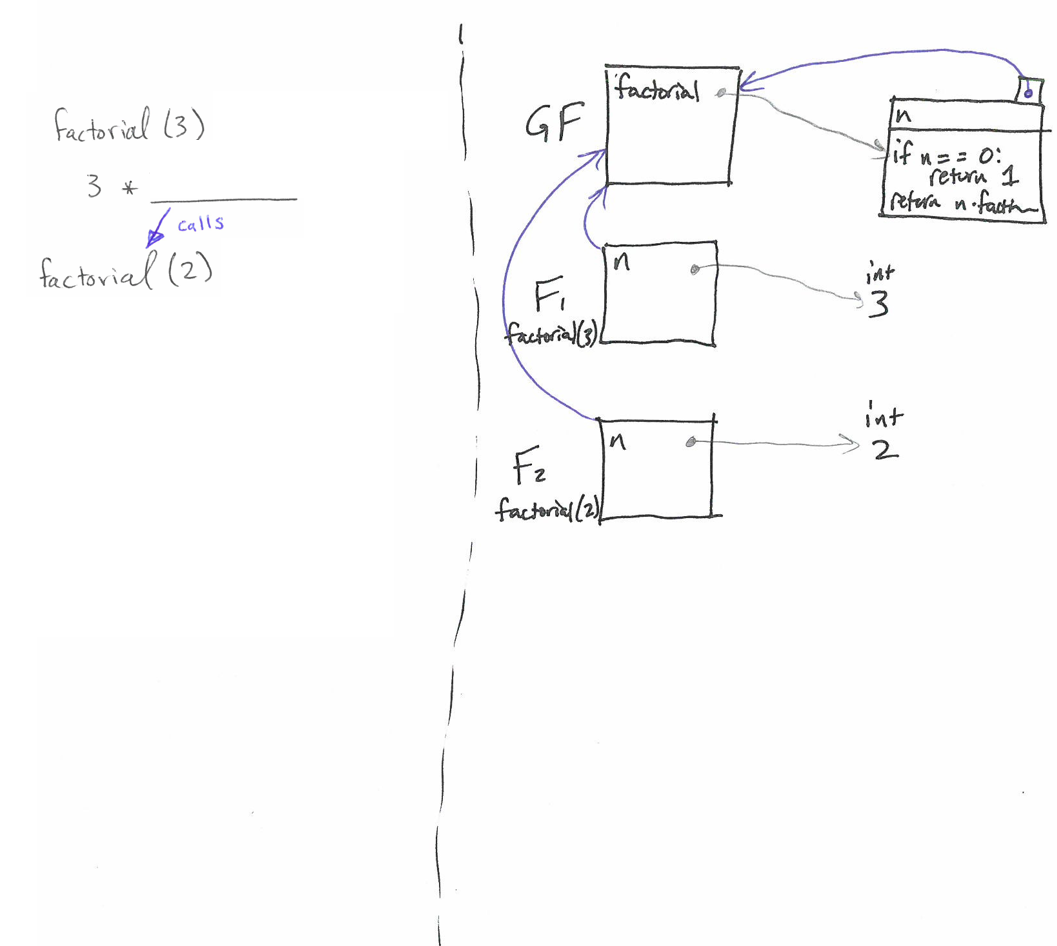 factorial (3)
3 * ________
calls
factorial (2)
GF
factorial
n
if n == 0:
return 1
return n·fact
n
F1
factorial(3)
int
3
n
F2
factorial(2)
int
2